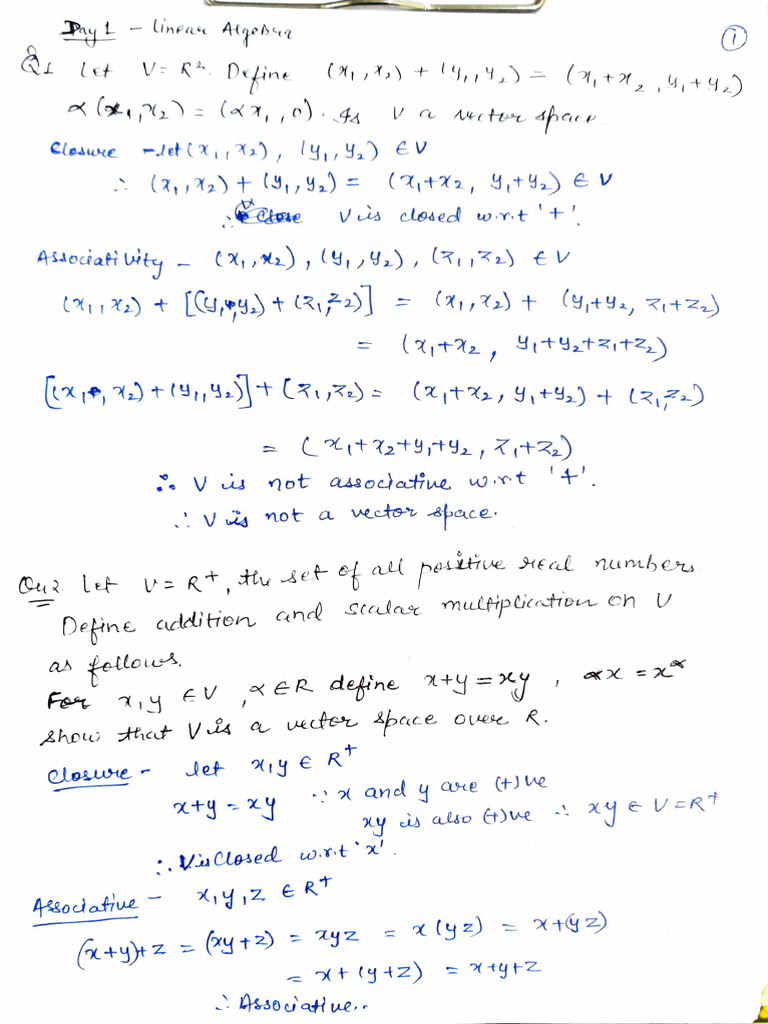 Day 1 - Linear Algebra
1
Q1 Let V = R². Define (x₁, x₂) + (y₁, y₂) = (x₁+x₂, y₁+y₂)
α(x₁, x₂) = (αx₁, 0). Is V a vector space.
Closure - let (x₁, x₂), (y₁, y₂) ∈ V
∴ (x₁, x₂) + (y₁, y₂) = (x₁+x₂, y₁+y₂) ∈ V
∴ V is closed w.r.t '+'.
Associativity - (x₁, x₂), (y₁, y₂), (z₁, z₂) ∈ V
(x₁, x₂) + [(y₁, y₂) + (z₁, z₂)] = (x₁, x₂) + (y₁+y₂, z₁+z₂)
= (x₁+x₂, y₁+y₂+z₁+z₂)
[(x₁, x₂) + (y₁, y₂)] + (z₁, z₂) = (x₁+x₂, y₁+y₂) + (z₁, z₂)
= (x₁+x₂+y₁+y₂, z₁+z₂)
∴ V is not associative w.r.t '+'.
∴ V is not a vector space.
Qu2 Let V = R⁺, the set of all positive real numbers
Define addition and scalar multiplication on V
as follows.
For x, y ∈ V, α ∈ R define x+y = xy, αx = x^α
show that V is a vector space over R.
Closure - let x, y ∈ R⁺
x+y = xy ∵ x and y are (+)ve
xy is also (+)ve ∴ xy ∈ V = R⁺
∴ V is closed w.r.t 'x'.
Associative - x, y, z ∈ R⁺
(x+y)+z = (xy+z) = xyz = x(yz) = x+(yz)
= x+(y+z) = x+y+z
∴ Associative..